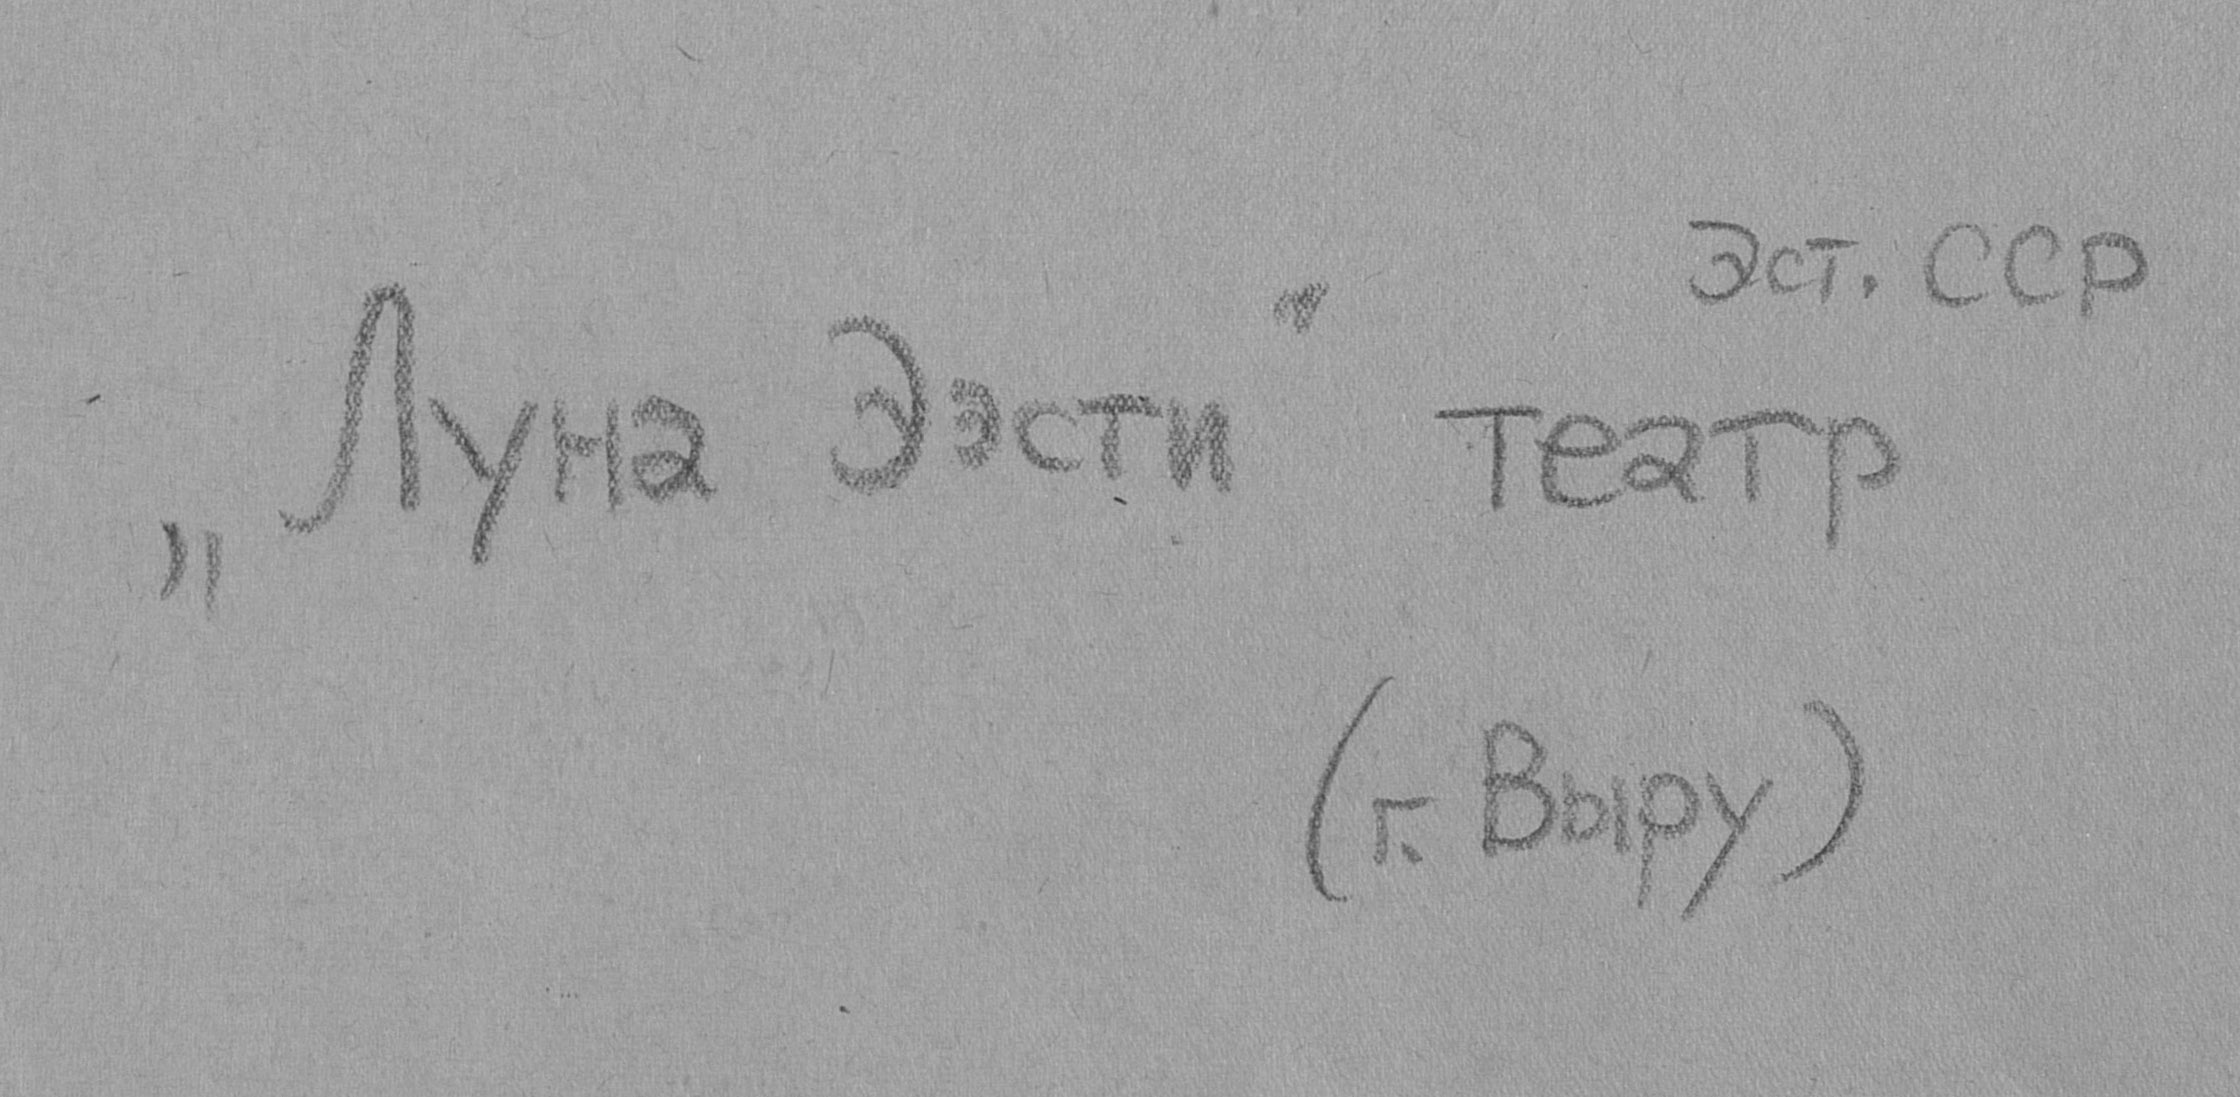 Эст. ССР
„Луна Ээсти" театр
(г. Выру)